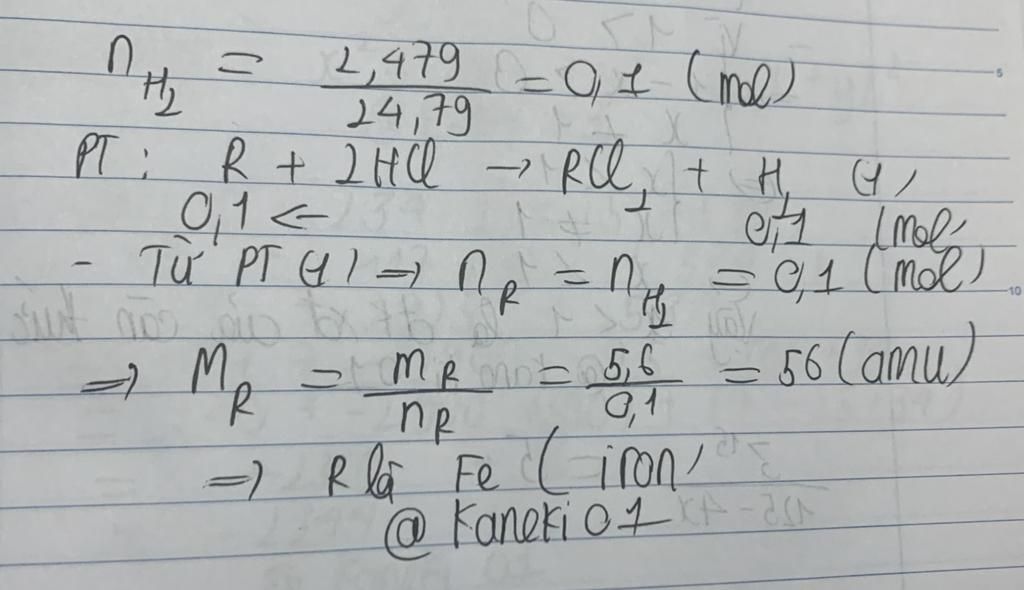 n_H₂ = 2,479/24,79 = 0,1 (mol)
PT: R + 2HCl → RCl₂ + H₂ (1)
0,1 ← 0,1 (mol)
- Từ PT (1) => n_R = n_H₂ = 0,1 (mol)
=> M_R = m_R/n_R = 5,6/0,1 = 56 (amu)
=> R là Fe (iron)
@Kaneki01